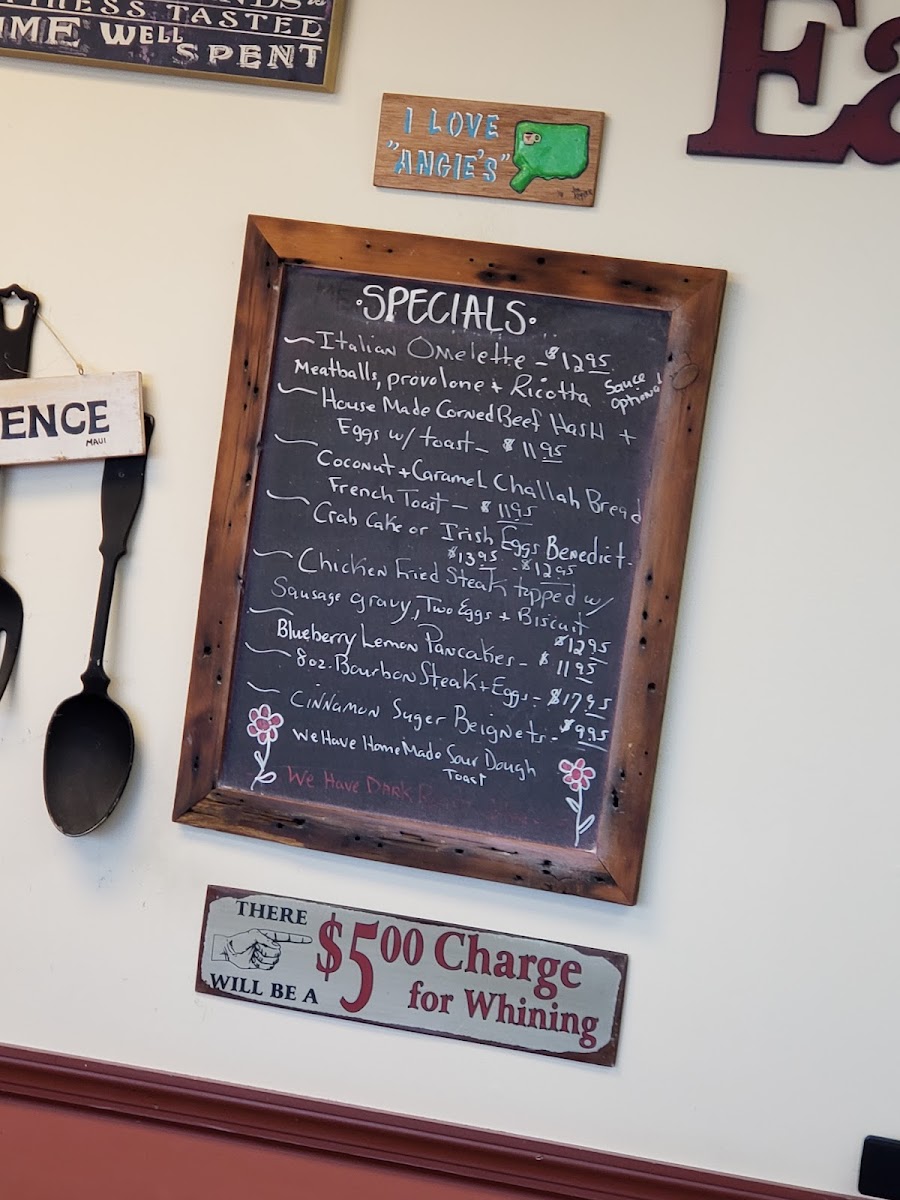 TASTED
WELL
SPENT
I LOVE
"ANGIE'S"
Ea
ENCE
MAUI
·SPECIALS·
Italian Omelette - $12.95
Meatballs, provolone + Ricotta Sauce optional
House Made Corned Beef Hash +
Eggs w/ toast - $11.95
Coconut + Caramel Challah Bread
French Toast - $11.95
Crab Cake or Irish Eggs Benedict -
$13.95 - $12.95
Chicken Fried Steak topped w/
Sausage gravy, Two Eggs + Biscuit
$12.95
Blueberry Lemon Pancakes - $11.95
8oz. Bourbon Steak + Eggs - $17.95
Cinnamon Suger Beignets - $9.95
We Have Home Made Sour Dough
Toast
We Have Dark
THERE
WILL BE A
$5.00 Charge
for Whining